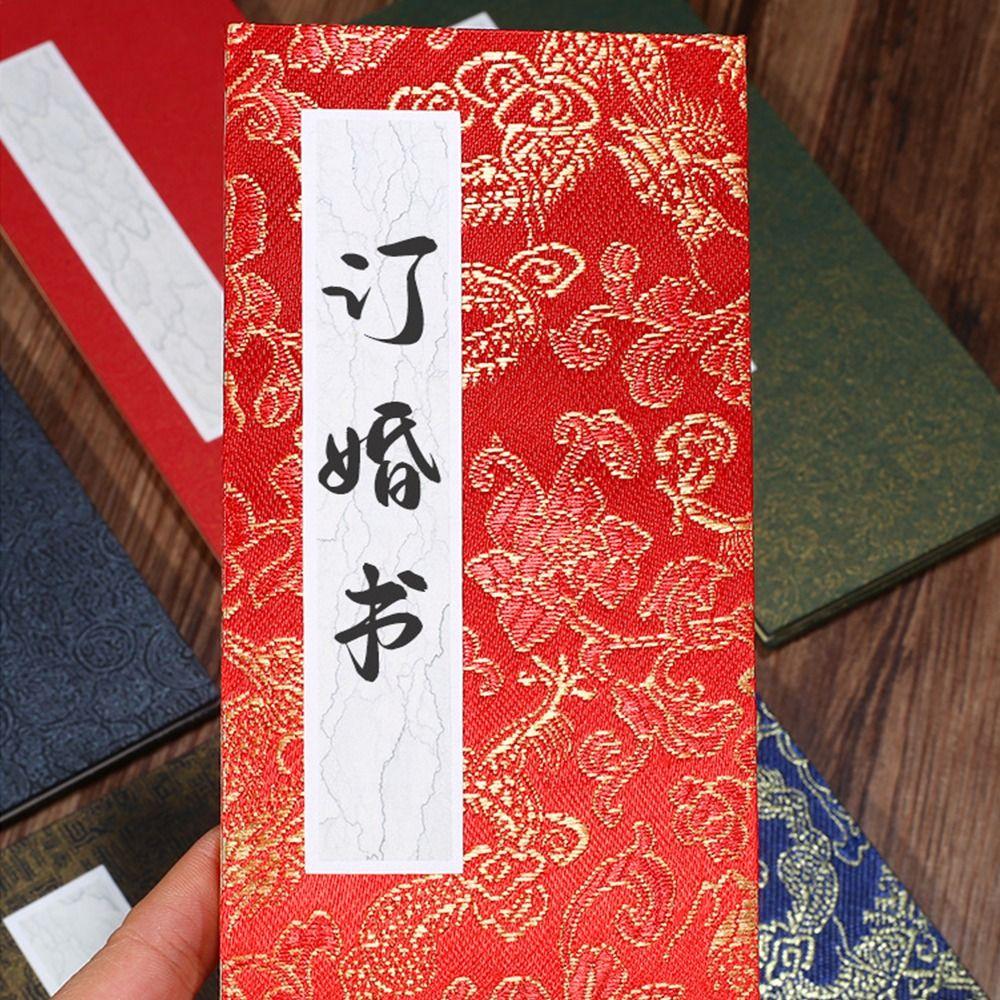 订婚书